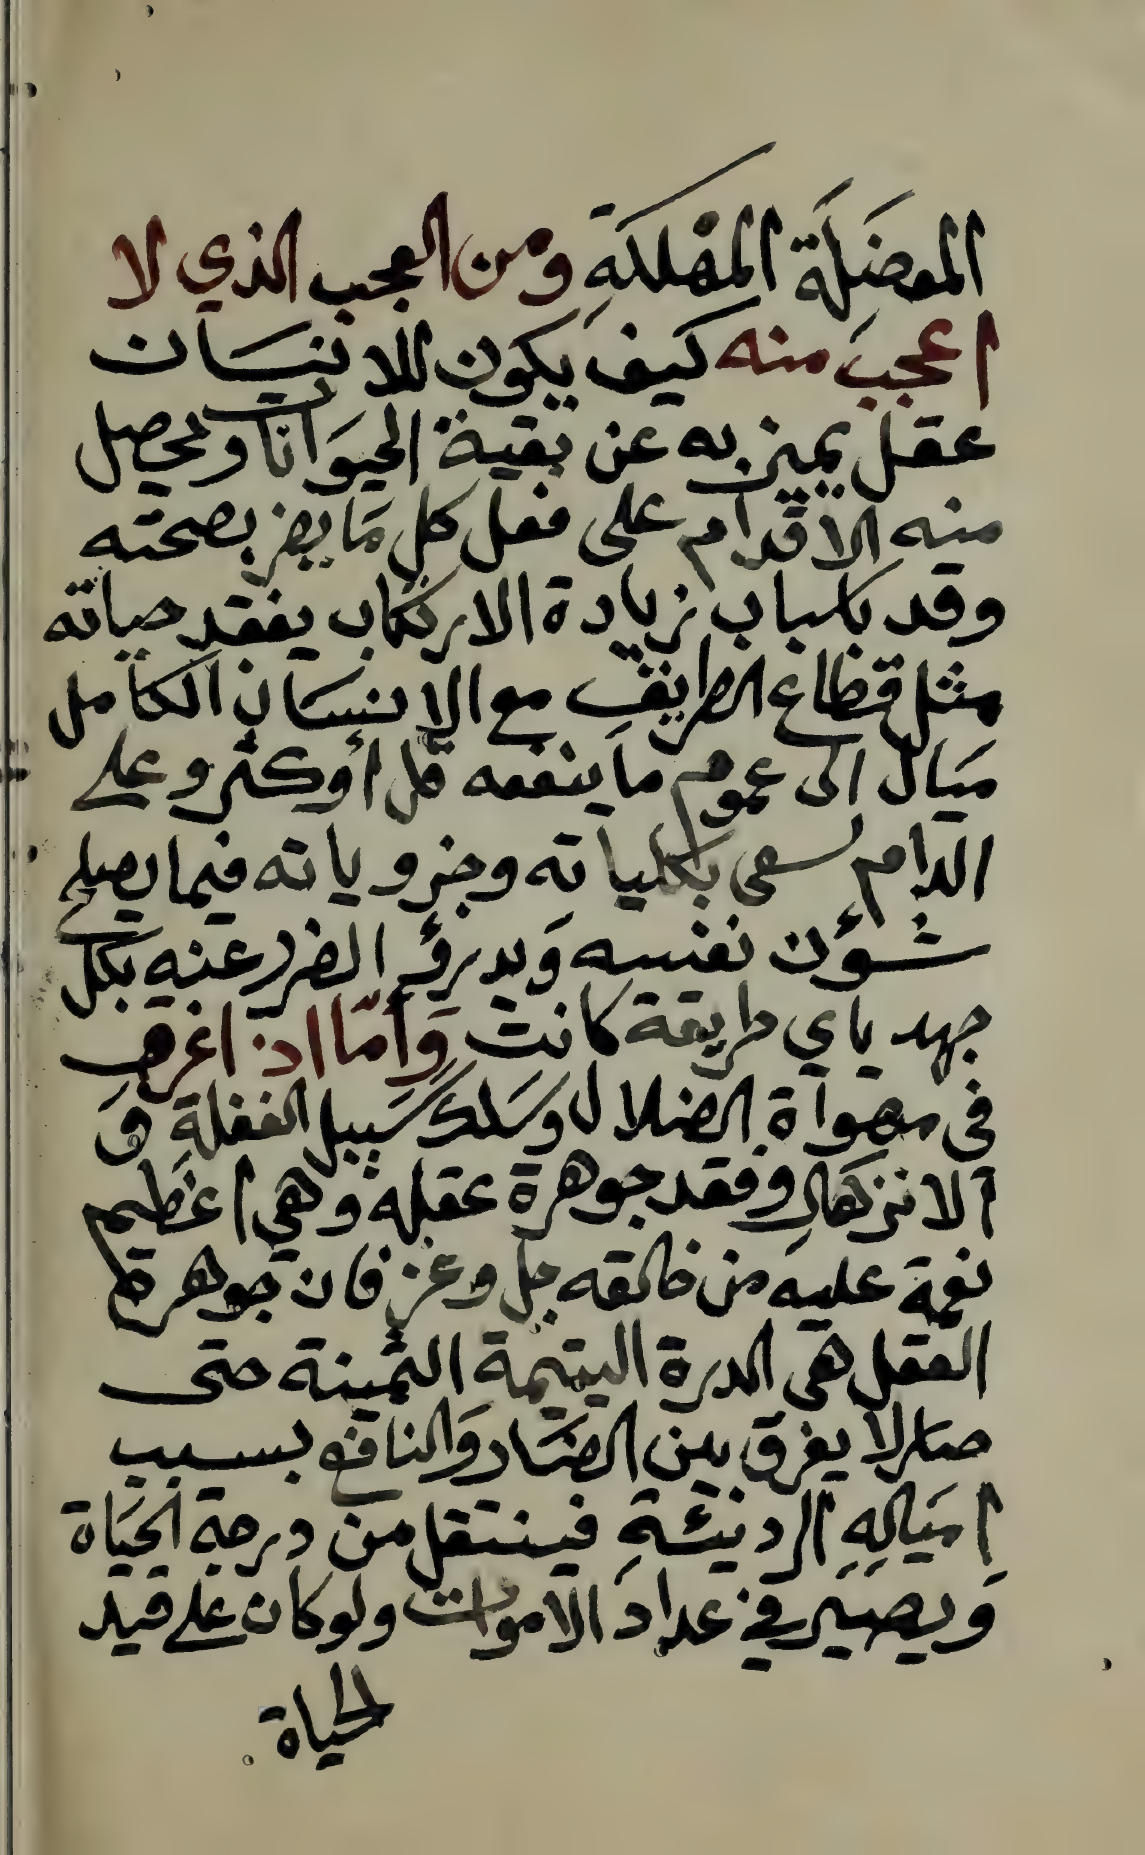 المعضَلَة المهْلكةِ ومن العجب الذي لا
اعجبَ منه كيف يكون للانسَان
عقل يميز به عن بقية الحيوَانات ويحصل
منه الاقدام على فعل كل مَا يضر بصحته
وقد بأسباب زيادة الارتكاب يفقد حياته
مثل قطاع الطرايق مع الانسَان الكامل
ميَال الى عموم ما ينفعه قل أو كثر وعلى
الدام يسعى بكلياته وجزوياته فيما يصلح
شؤن نفسه وَيدرؤ الضرر عنه بكل
جهد باي طريقة كانت وَأمّا اذا غرق
فى مهواة الضلال وسَلك سَبيل الغفلة وَ
الانزهار وفقد جوهرة عقله وهي اعظم
نعمة عليه من خالقه جل وعز فان جوهرة
العقل هى الدرة اليتيمة الثمينة حتى
صار لا يفرق بين الضَار وَالنافع بسبب
اميَالِهِ الردِيئة فينتقل من درجة الحيَاة
وَيصير في عدادَ الاموات ولو كان على قيد
الحياة